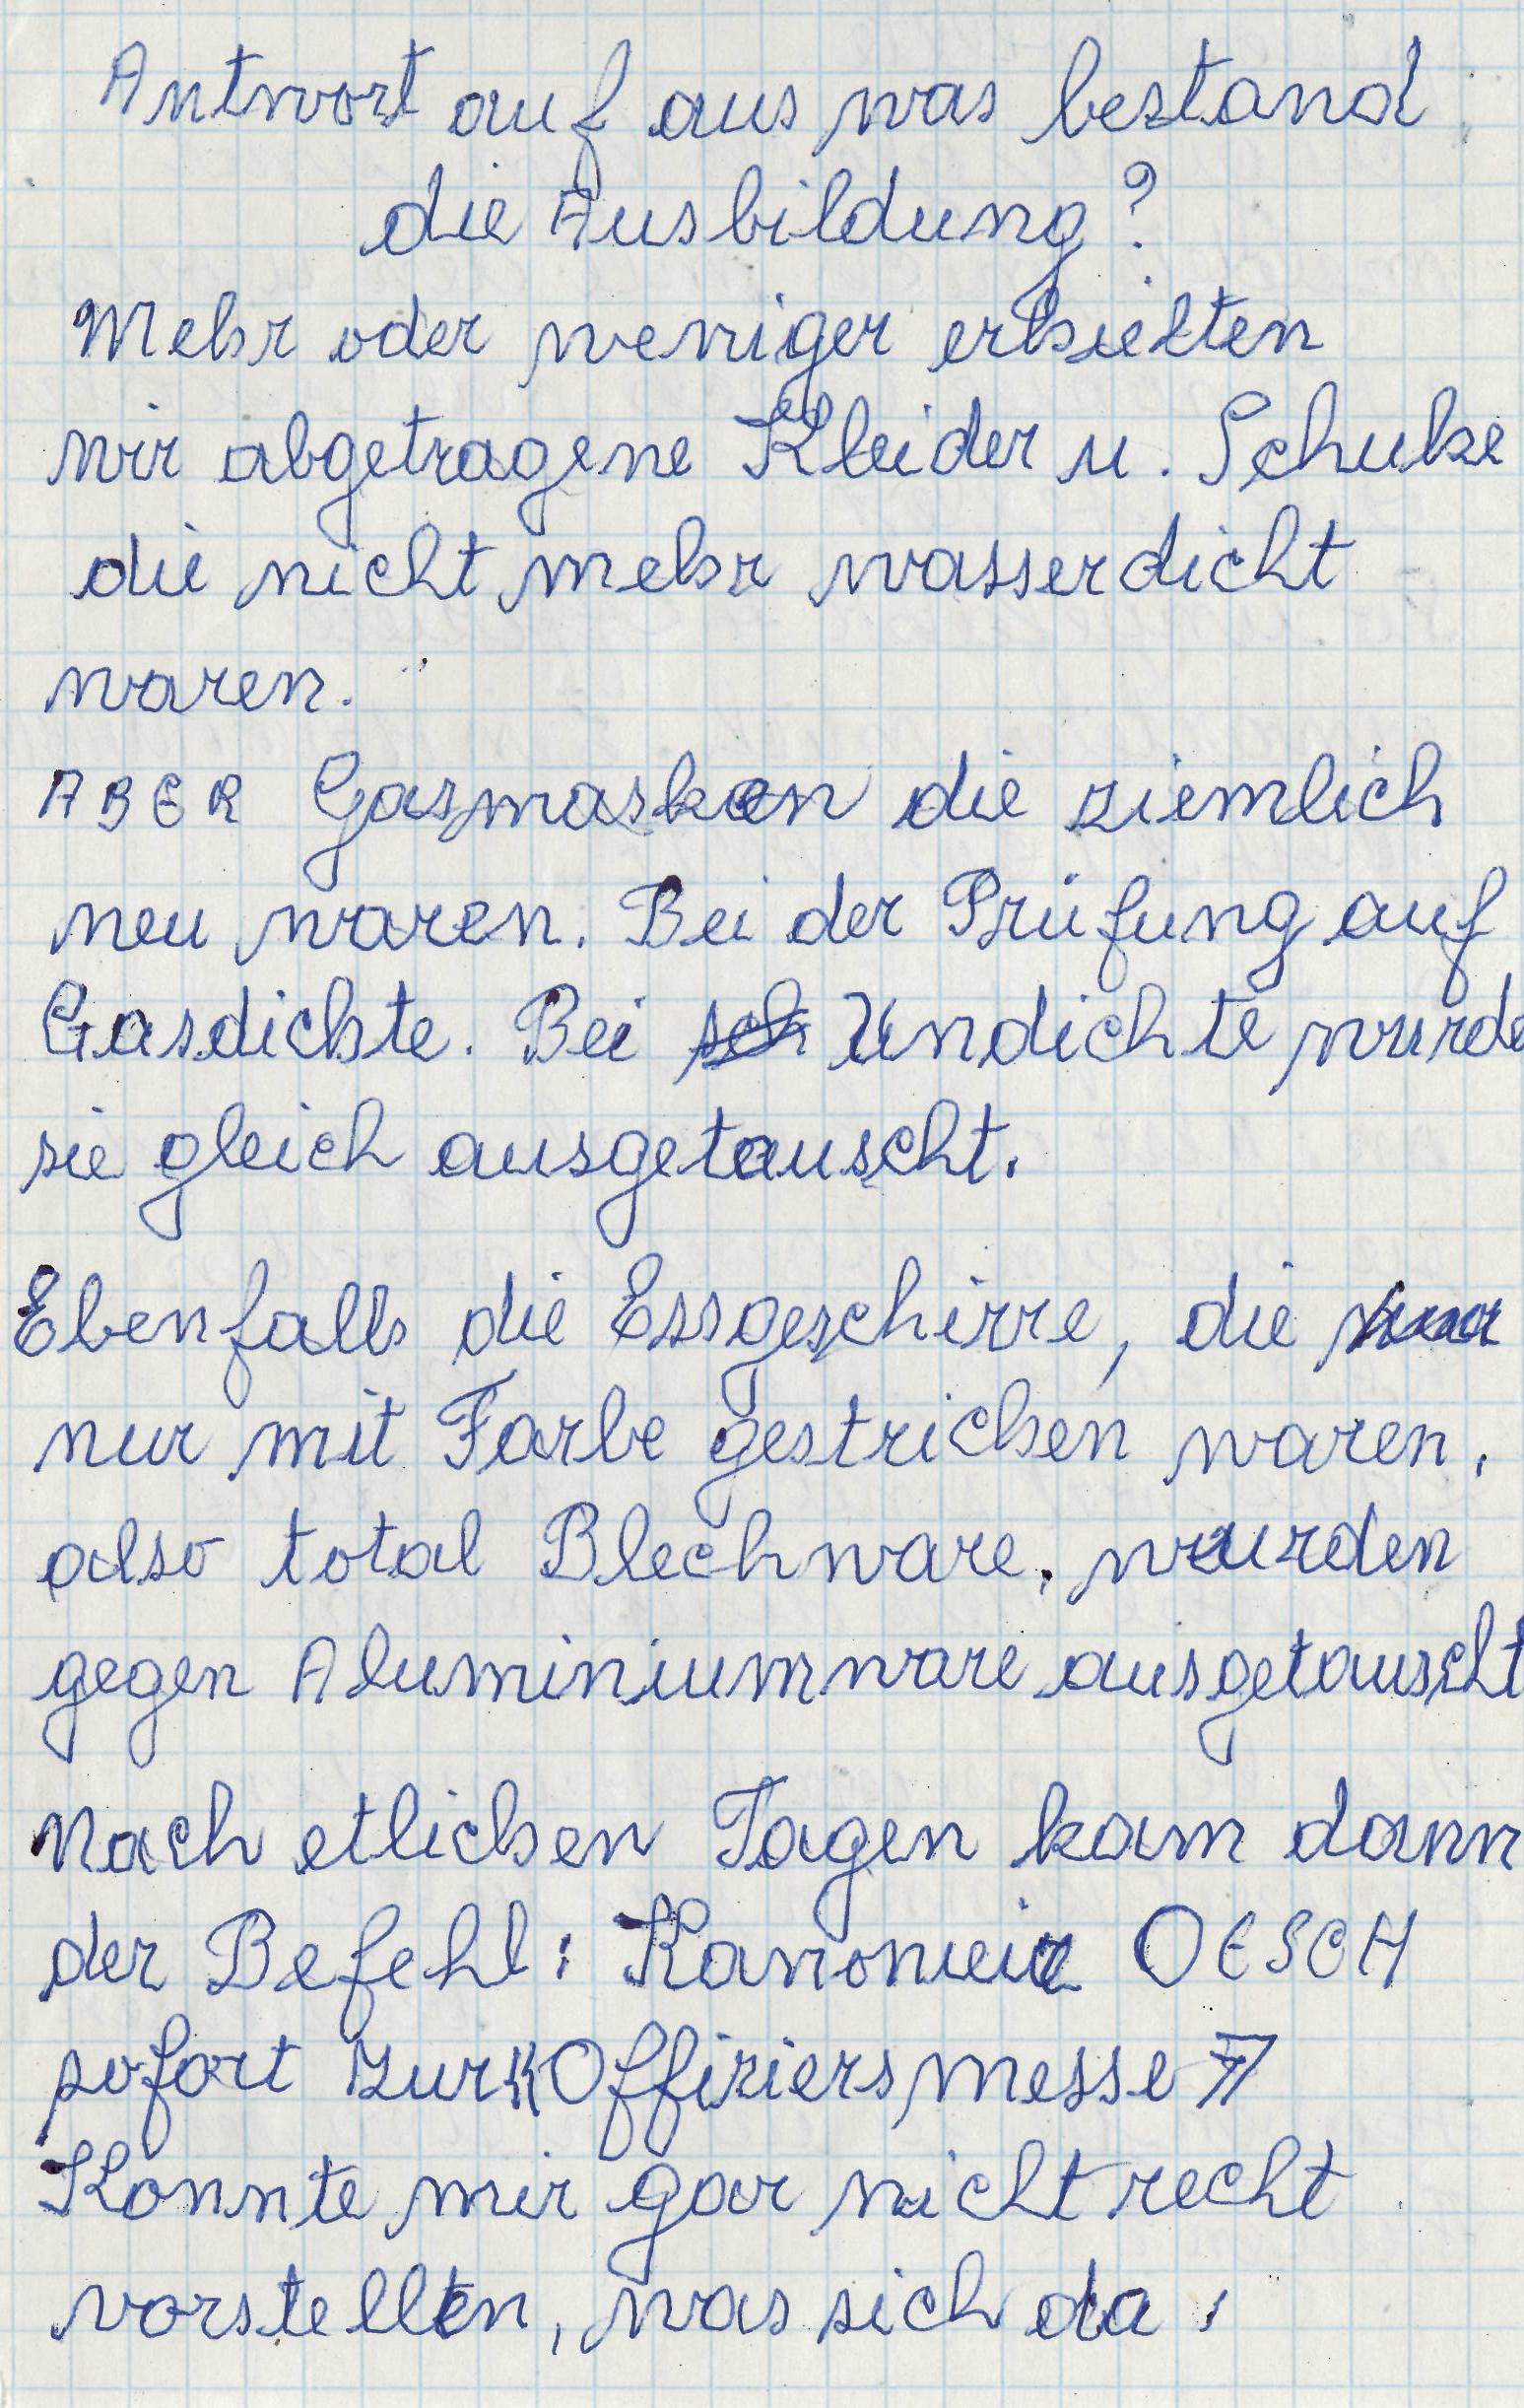 Antwort auf aus was bestand
die Ausbildung?
Mehr oder weniger erhielten
wir abgetragene Kleider u. Schuhe
die nicht mehr wasserdicht
waren.
ABER Gasmasken die ziemlich
neu waren. Bei der Prüfung auf
Gasdichte. Bei sch Undichte wurde
sie gleich ausgetauscht.
Ebenfalls die Essgeschirre, die
nur mit Farbe gestrichen waren,
also total Blechware, wurden
gegen Aluminiumware ausgetauscht
Nach etlichen Tagen kam dann
der Befehl: Kanonier OESCH
sofort zur Offiziersmesse
Konnte mir gar nicht recht
vorstellen, was sich da